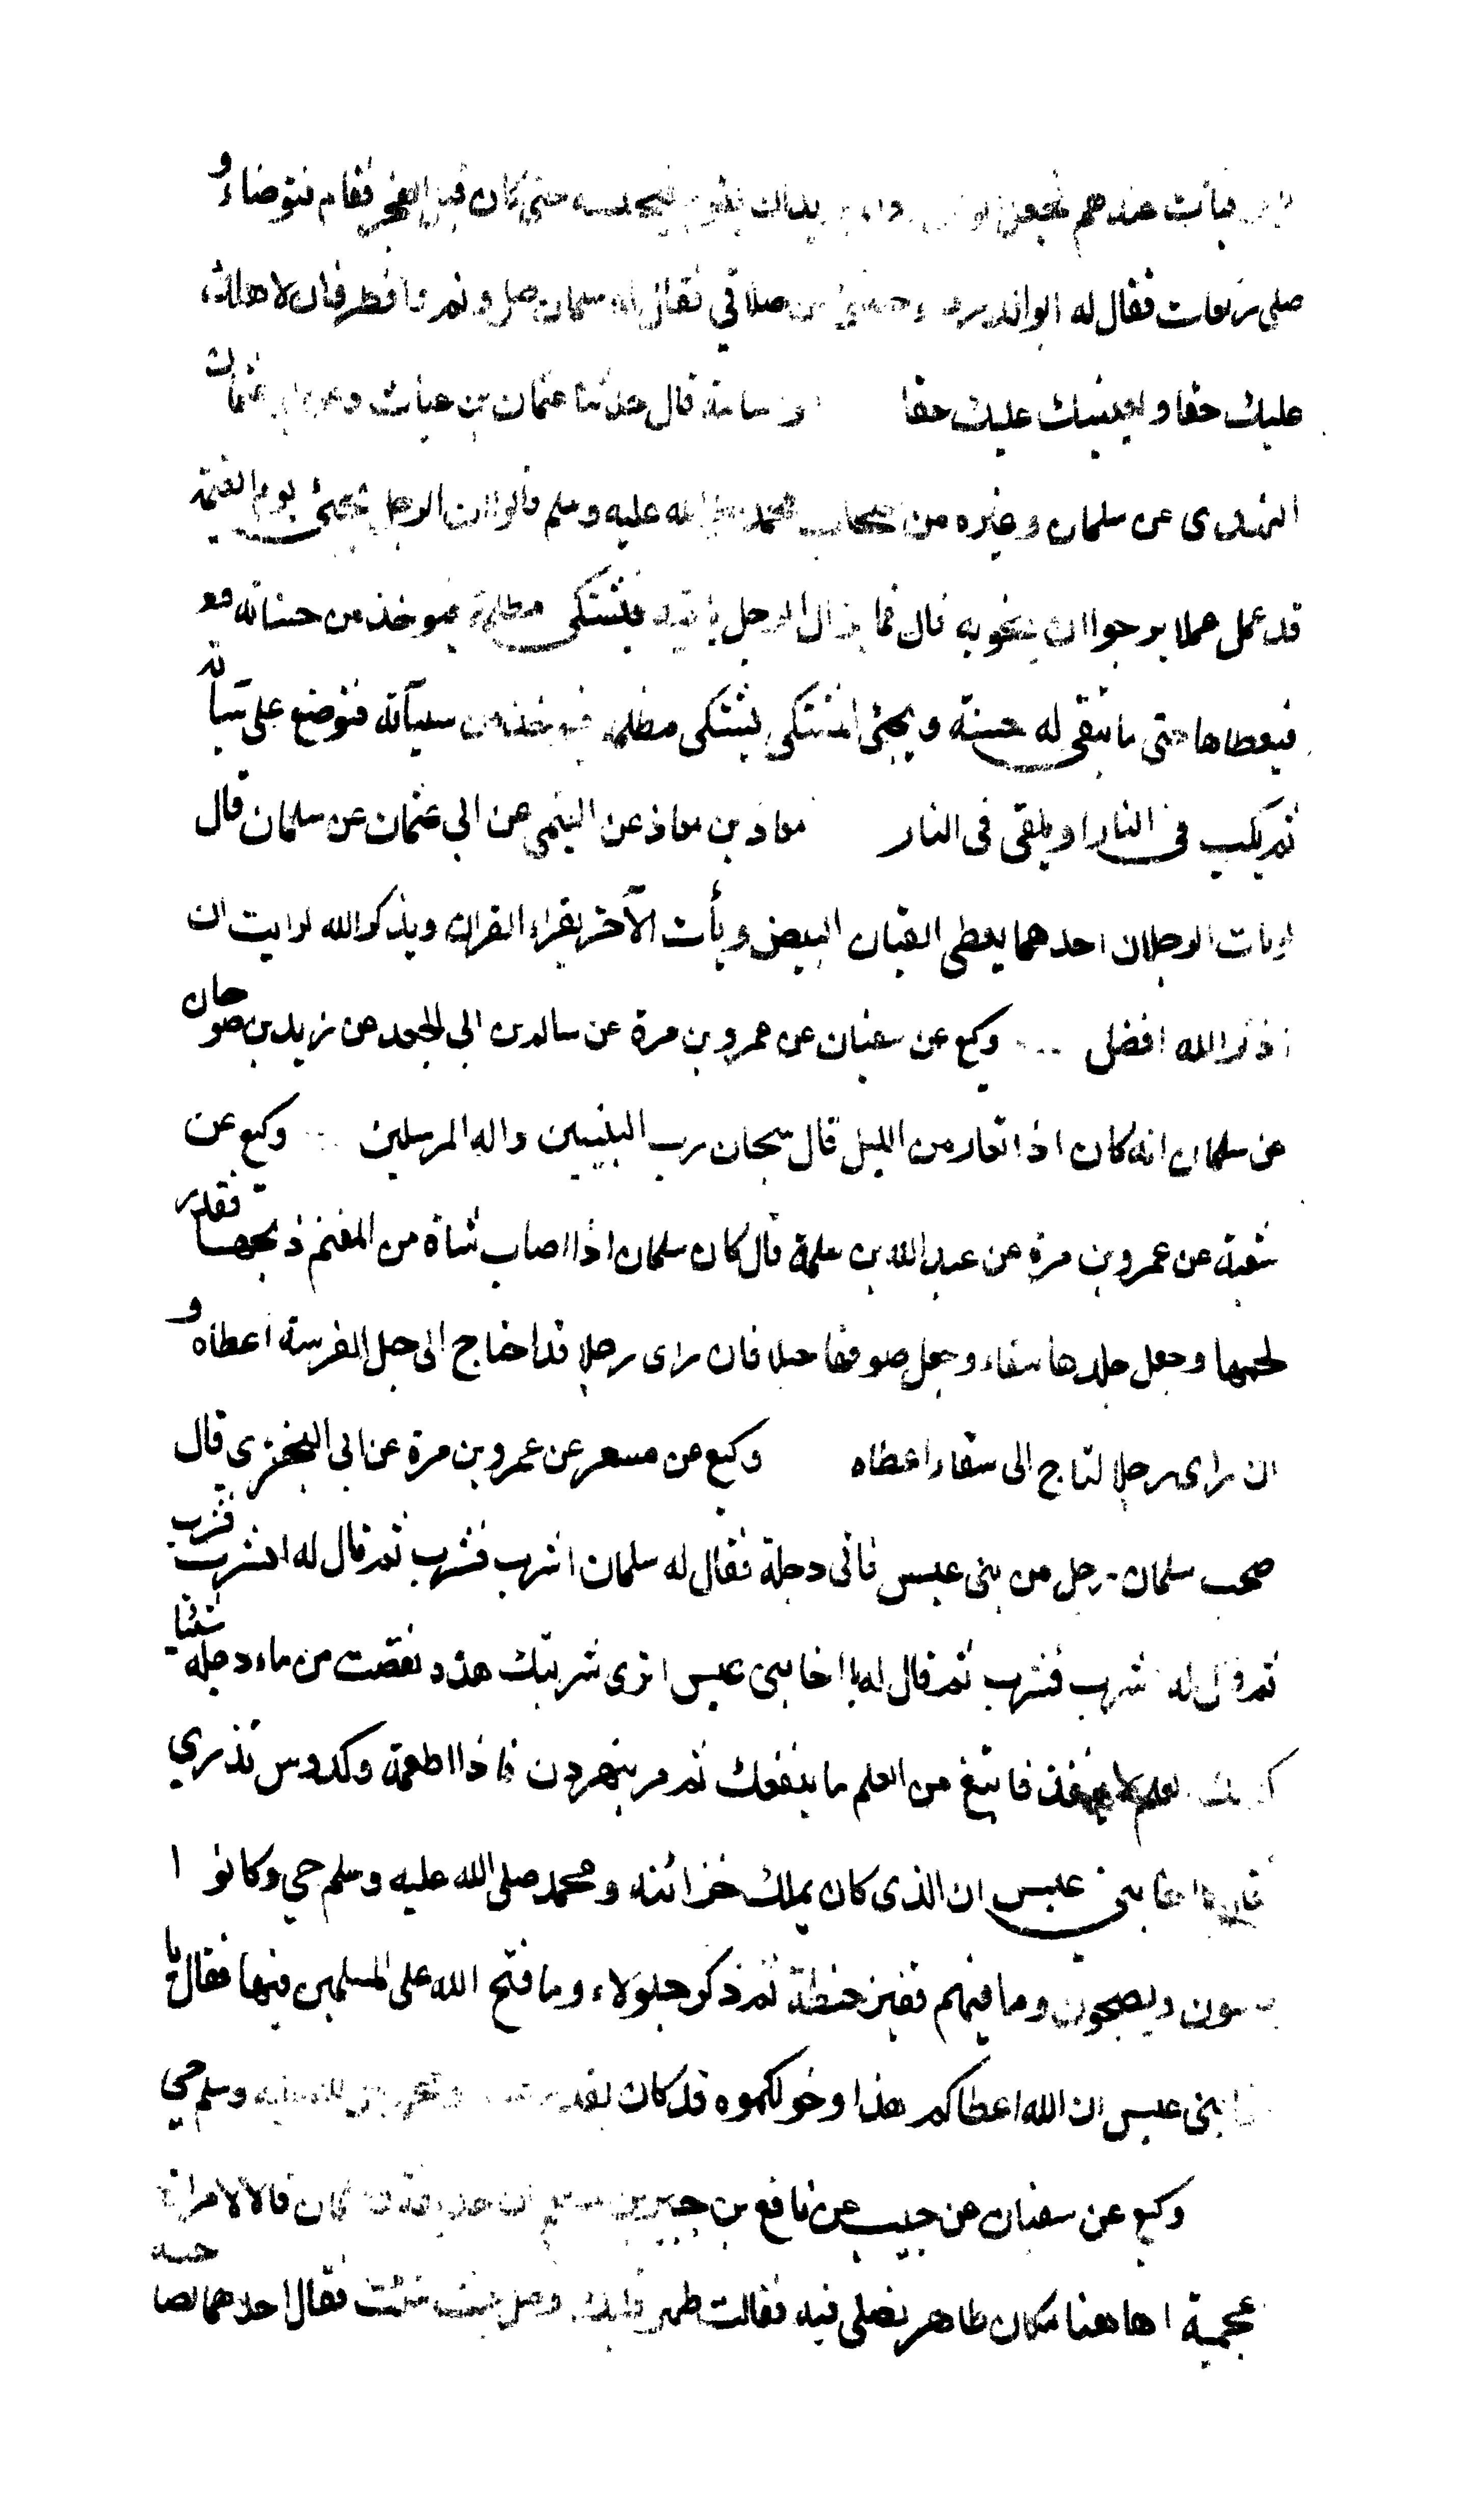 فبات عندهم فجعل يقوم فيحبسه حتى كان قبل الفجر فقام فتوضاء و
صلى ركعات فقال له ابو الدرداء حبستني عن صلاتي فقال له سلمان صل ونم و افطر فان لاهلك
عليك حقا و لعينيك عليك حقا اسامة قال حدثنا عثمان بن غياث وعن ابي عثمان
النهدى عن سلمان وغيره من اصحاب محمد صلى الله عليه وسلم قالوا ان الرجل يجئ يوم القيمة
قد عمل عملا يرجوا ان ينجو به قال فما يزال الرجل ياتيه فيشتكى مظلمة فيوخذ من حسناته
فيعطاها حتى ما تبقى له حسنة ويجئ المشتكى يشتكى مظلمة فيوخذ من سيآته فتوضع على سيآته
ثم يكب فى النار او يلقى فى النار معاذ بن معاذ عن التيمي عن ابي عثمان عن سلمان قال
لو بات الرجلان احدهما يعطى القيان البيض وبأت الآخر يقراء القران ويذكر الله لرايت ان
ذاكر الله افضل وكيع عن سفيان عن عمرو بن مرة عن سالم بن ابي الجعد عن زيد بن صوحان
عن سلمان انه كان اذا تعار من الليل قال سبحان رب النبيين واله المرسلين وكيع عن
شعبة عن عمرو بن مرة عن عبد الله بن سلمة قال كان سلمان اذا اصاب شاة من المغنم ذبحها فقدر
لحمها وجعل جلدها سقاء وجعل صوفها حبلا فان راى رجلا قد احتاج الى حبل لفرسه اعطاه و
ان راى رجلا احتاج الى سقاء اعطاه وكيع عن مسعر عن عمرو بن مرة عن ابي البختري قال
صحب سلمان رجل من بنى عبس فاتى دجلة فقال له سلمان اشرب فشرب ثم قال له اشرب فشرب
ثم قال له اشرب فشرب ثم قال له يا اخا بنى عبس اترى شربتك هذه نقصت من ماء دجلة شيئا
كذلك العلم لا ينفذ فابتغ من العلم ما ينفعك ثم مر بنهردن فاذا اطعمة وكدوس تذري
فقال يا اخا بنى عبس ان الذى كان يملك خزائنه ومحمد صلى الله عليه وسلم حي وكانوا
يمسون ويصبحون وما فيهم قفيز حنطة ثم ذكر جلولاء وما فتح الله على المسلمين فيها فقال يا
اخا بنى عبس ان الله اعطاكم هذا وخولكموه قد كان لقدير ومحمد صلى الله عليه وسلم حي
وكيع عن سفيان عن حبيب عن نافع بن جبير بن مطعم ان حذيفة وسلمان قالا لامراة
عجمية اهاهنا مكان طاهر نصلى فيه فقالت طهر قلبك وصل حيث شئت فقال احدهما لصاحبه